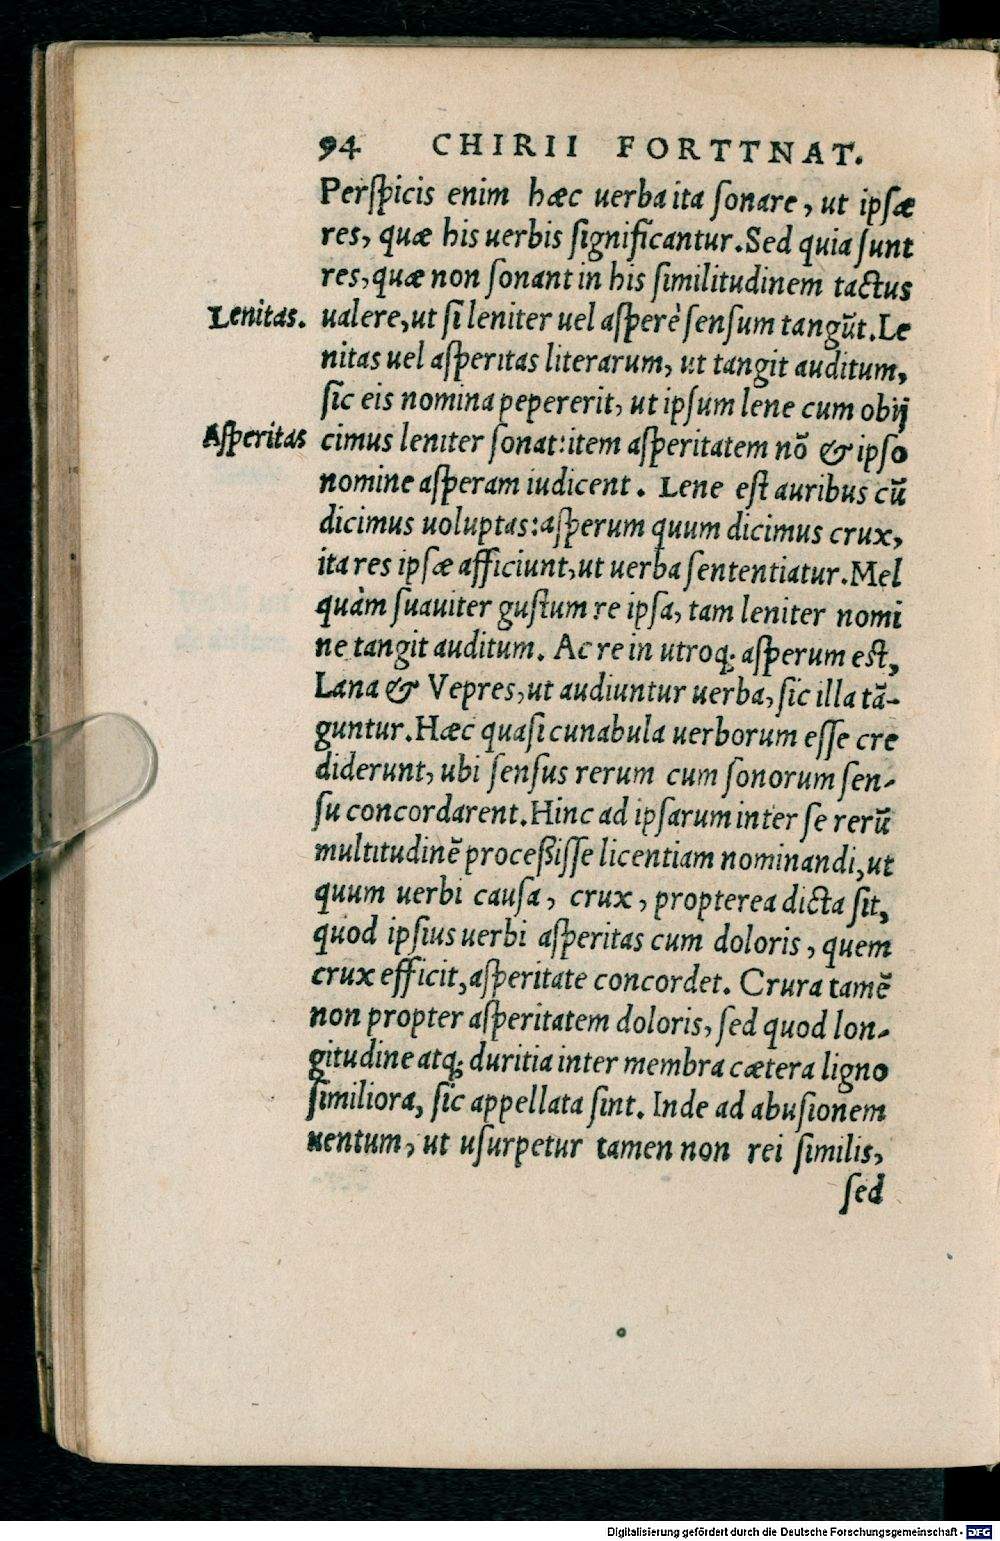 94 CHIRII FORTTNAT.
Perſpicis enim hæc uerba ita ſonare, ut ipſæ
res, quæ his uerbis ſignificantur. Sed quia ſunt
res, quæ non ſonant in his ſimilitudinem tactus
Lenitas.
ualere, ut ſi leniter uel aſperè ſenſum tangūt. Le
nitas uel aſperitas literarum, ut tangit auditum,
ſic eis nomina pepererit, ut ipſum lene cum obij
Aſperitas
cimus leniter ſonat: item aſperitatem nō & ipſo
nomine aſperam iudicent. Lene eſt auribus cū
dicimus uoluptas: aſperum quum dicimus crux,
ita res ipſæ afficiunt, ut uerba ſententiatur. Mel
quàm ſuauiter guſtum re ipſa, tam leniter nomi
ne tangit auditum. Ac re in utroq; aſperum eſt,
Lana & Vepres, ut audiuntur uerba, ſic illa tā-
guntur. Hæc quaſi cunabula uerborum eſſe cre
diderunt, ubi ſenſus rerum cum ſonorum ſen-
ſu concordarent. Hinc ad ipſarum inter ſe rerū
multitudinē proceßiſſe licentiam nominandi, ut
quum uerbi cauſa, crux, propterea dicta ſit,
quod ipſius uerbi aſperitas cum doloris, quem
crux efficit, aſperitate concordet. Crura tamē
non propter aſperitatem doloris, ſed quod lon-
gitudine atq; duritia inter membra cætera ligno
ſimiliora, ſic appellata ſint. Inde ad abuſionem
uentum, ut uſurpetur tamen non rei ſimilis,
ſed
Digitalisierung gefördert durch die Deutsche Forschungsgemeinschaft - DFG